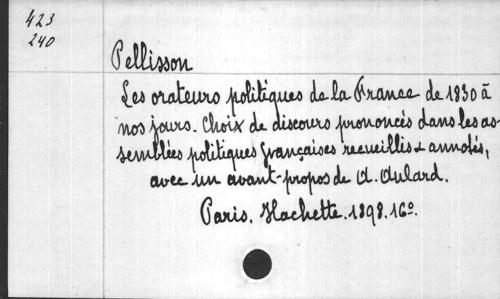 423
240
Pellisson
Les orateurs politiques de la France de 1830 à
nos jours. Choix de discours prononcés dans les as-
semblées politiques françaises recueillis & annotés,
avec un avant-propos de A. Aulard.
Paris. Hachette. 1898. 16º.